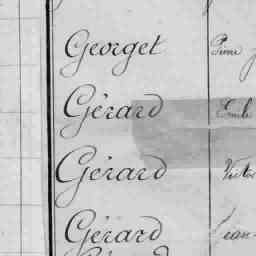 Georget Pierre
Gérard Emile
Gérard Victor
Gérard Jean-